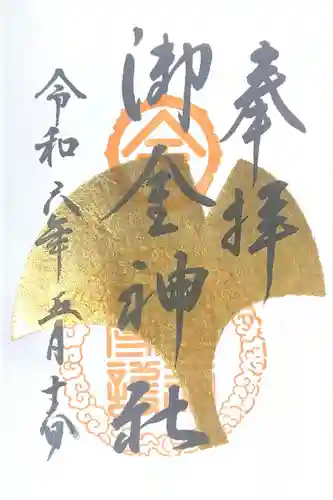 奉拝
御金神社
令和六年五月十六日